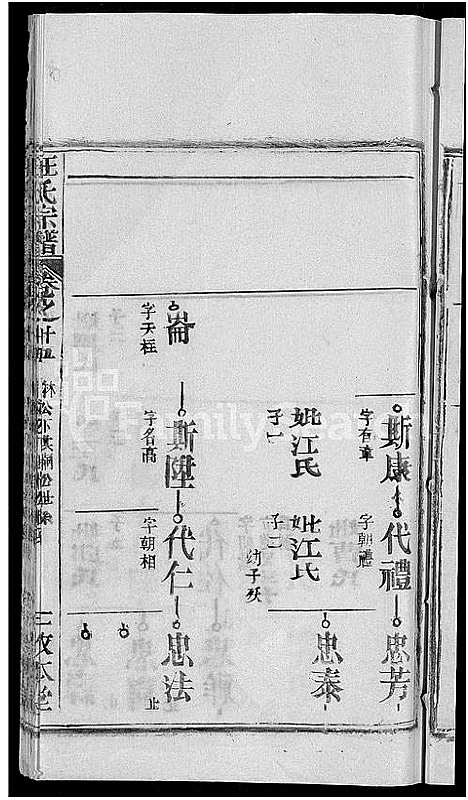 斯康 代禮 忠芳
字有章 字朝禮
妣江氏 妣江氏 忠泰
子一 子二
幼子歿
崙 斯陞 代仁 忠法
字天柱 字名高 字朝相 止
汪氏宗譜 卷之廿五
敦本堂
FamilySearch